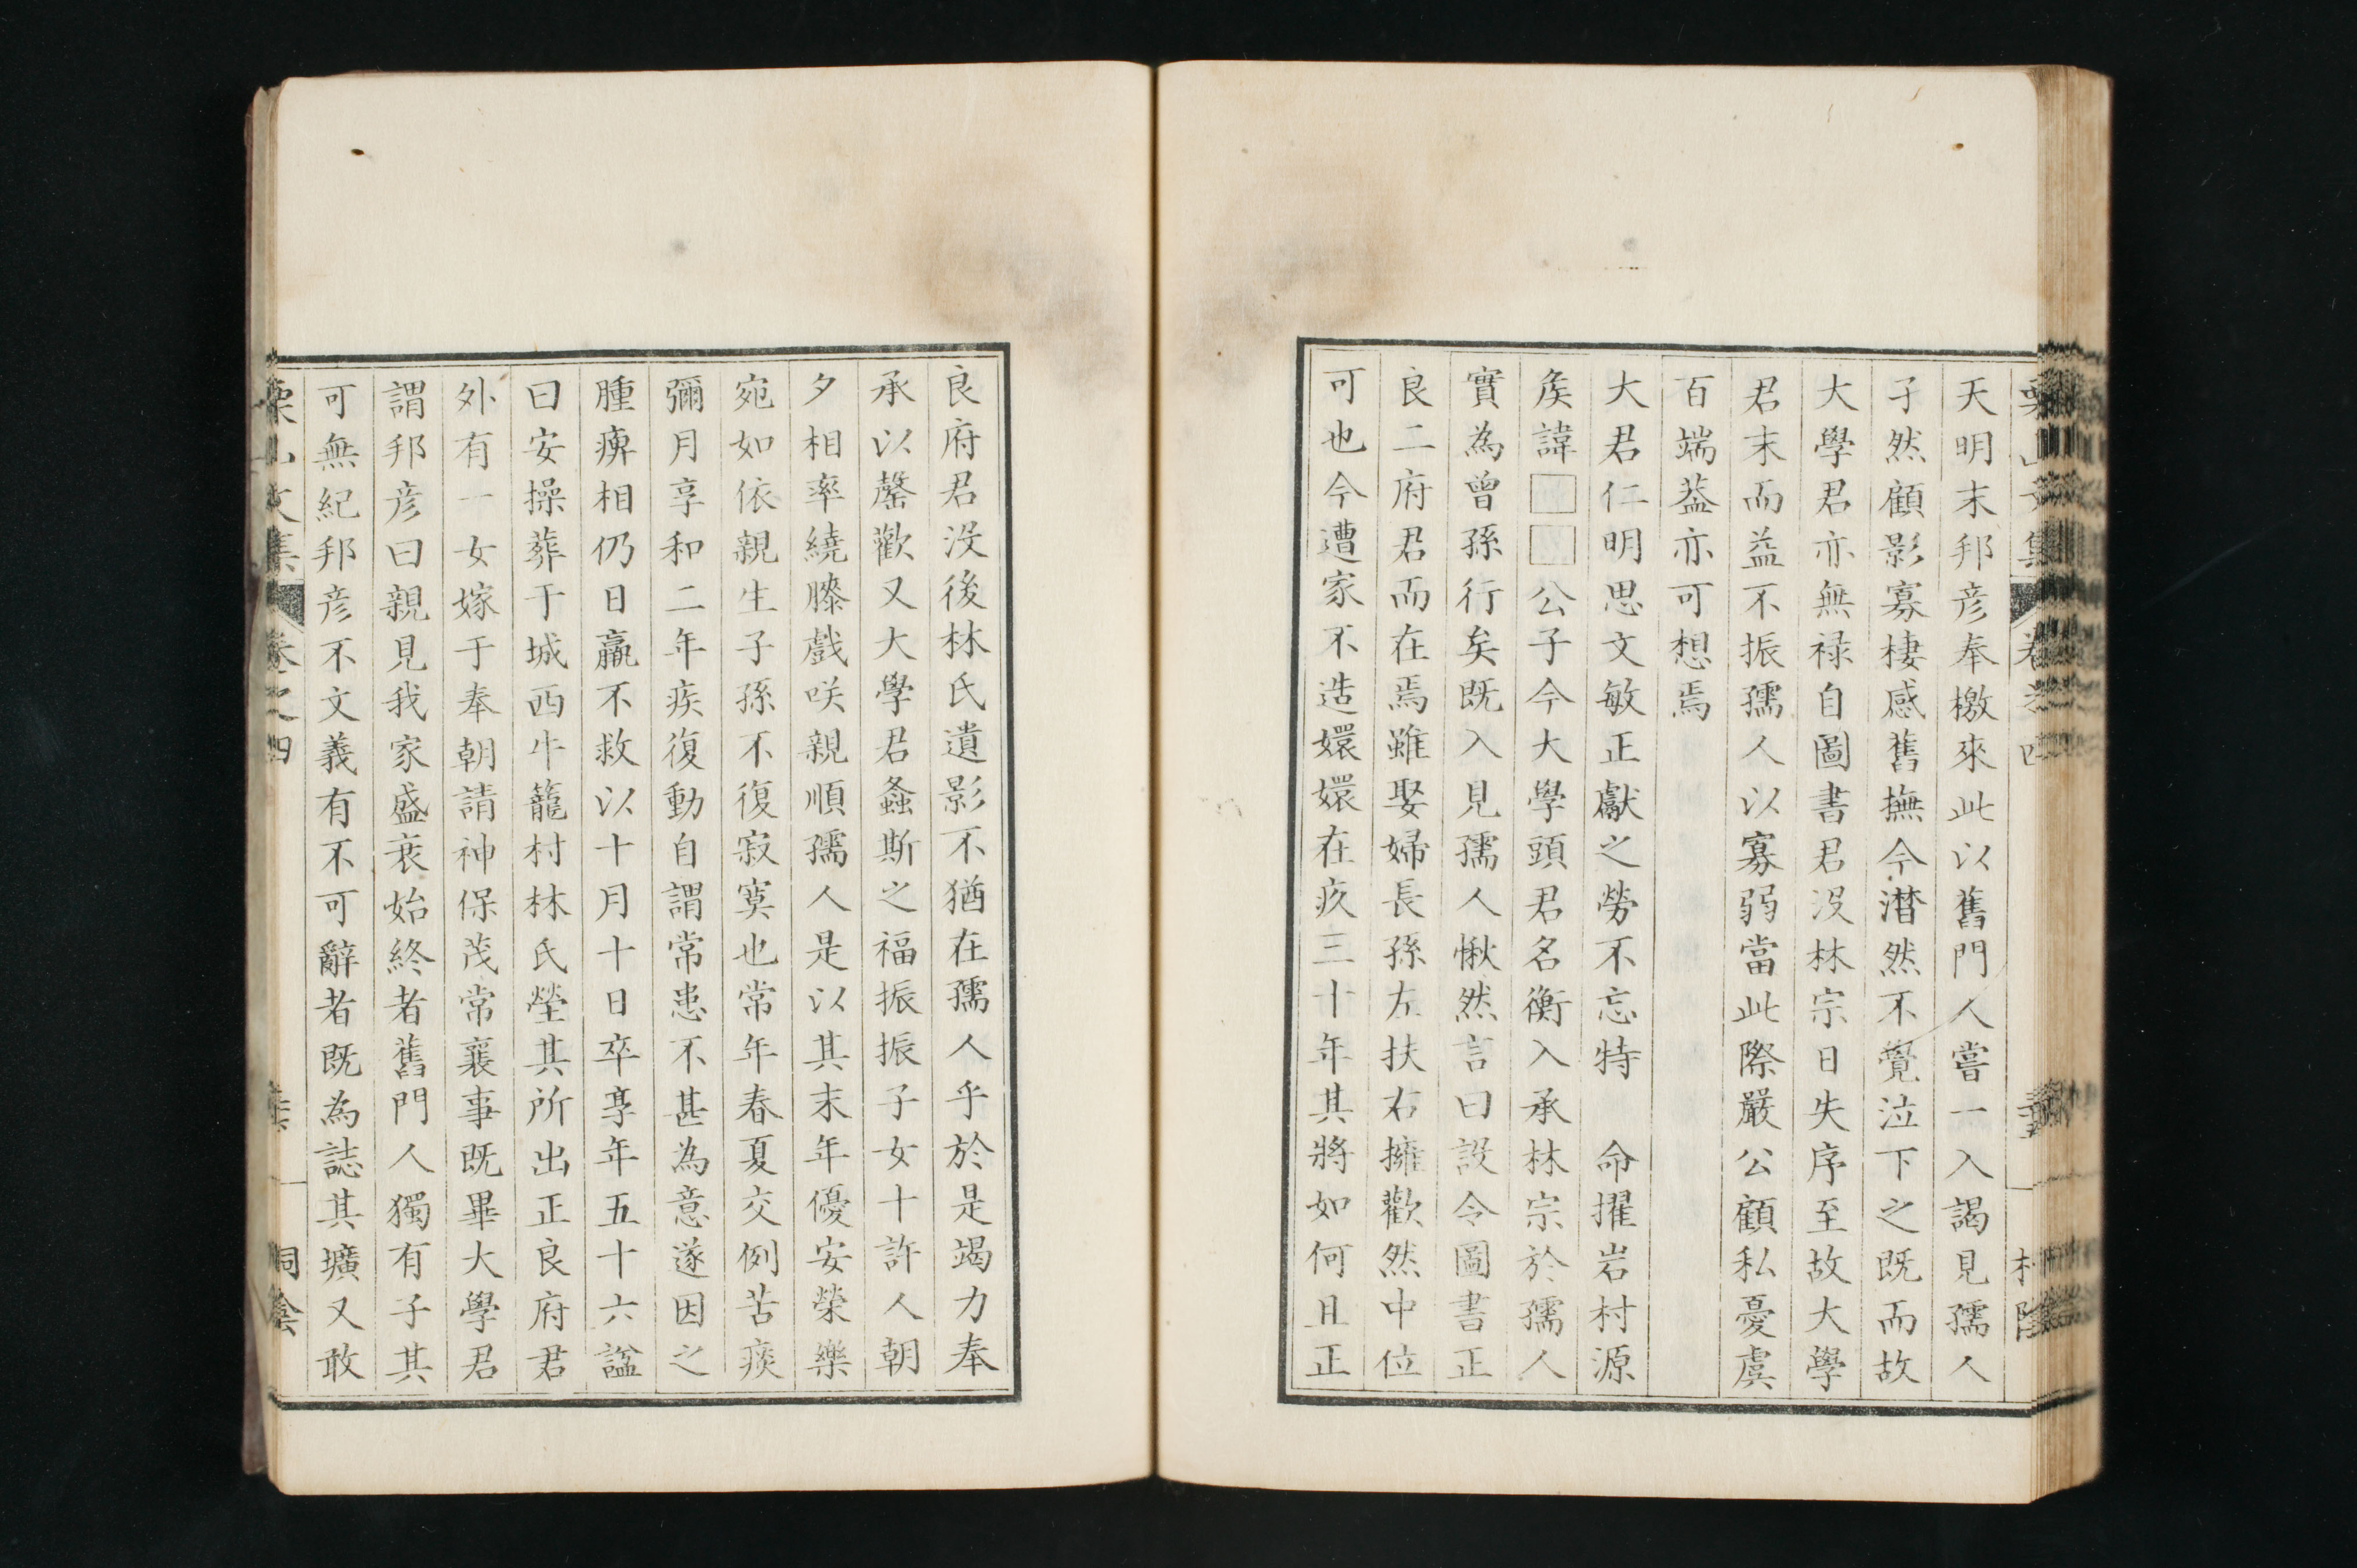 天明末邦彦奉檄來此以舊門人嘗一入謁見孺人
孑然顧影寡棲感舊撫今潸然不覺泣下之既而故
大學君亦無祿自圖書君没林宗日失序至故大學
君末而益不振孺人以寡弱當此際嚴公顧私憂虞
百端葢亦可想焉
大君仁明思文敏正獻之勞不忘特　命擢岩村源
矦諱□□公子今大學頭君名衡入承林宗於孺人
實為曾孫行矣既入見孺人愀然言曰設令圖書正
良二府君而在焉雖娶婦長孫左扶右擁歡然中位
可也今遭家不造嬛嬛在疚三十年其將如何且正
良府君没後林氏遺影不猶在孺人乎於是竭力奉
承以罄歡又大學君螽斯之福振振子女十許人朝
夕相率繞膝戲咲親順孺人是以其末年優安榮樂
宛如依親生子孫不復寂寞也常年春夏交例苦痰
彌月享和二年疾復動自謂常患不甚為意遂因之
腫痹相仍日羸不救以十月十日卒享年五十六諡
曰安操葬于城西牛籠村林氏塋其所出正良府君
外有一女嫁于奉朝請神保茂常襄事既畢大學君
謂邦彦曰親見我家盛衰始終者舊門人獨有子其
可無紀邦彦不文義有不可辭者既為誌其壙又敢
栗山文集　卷之四